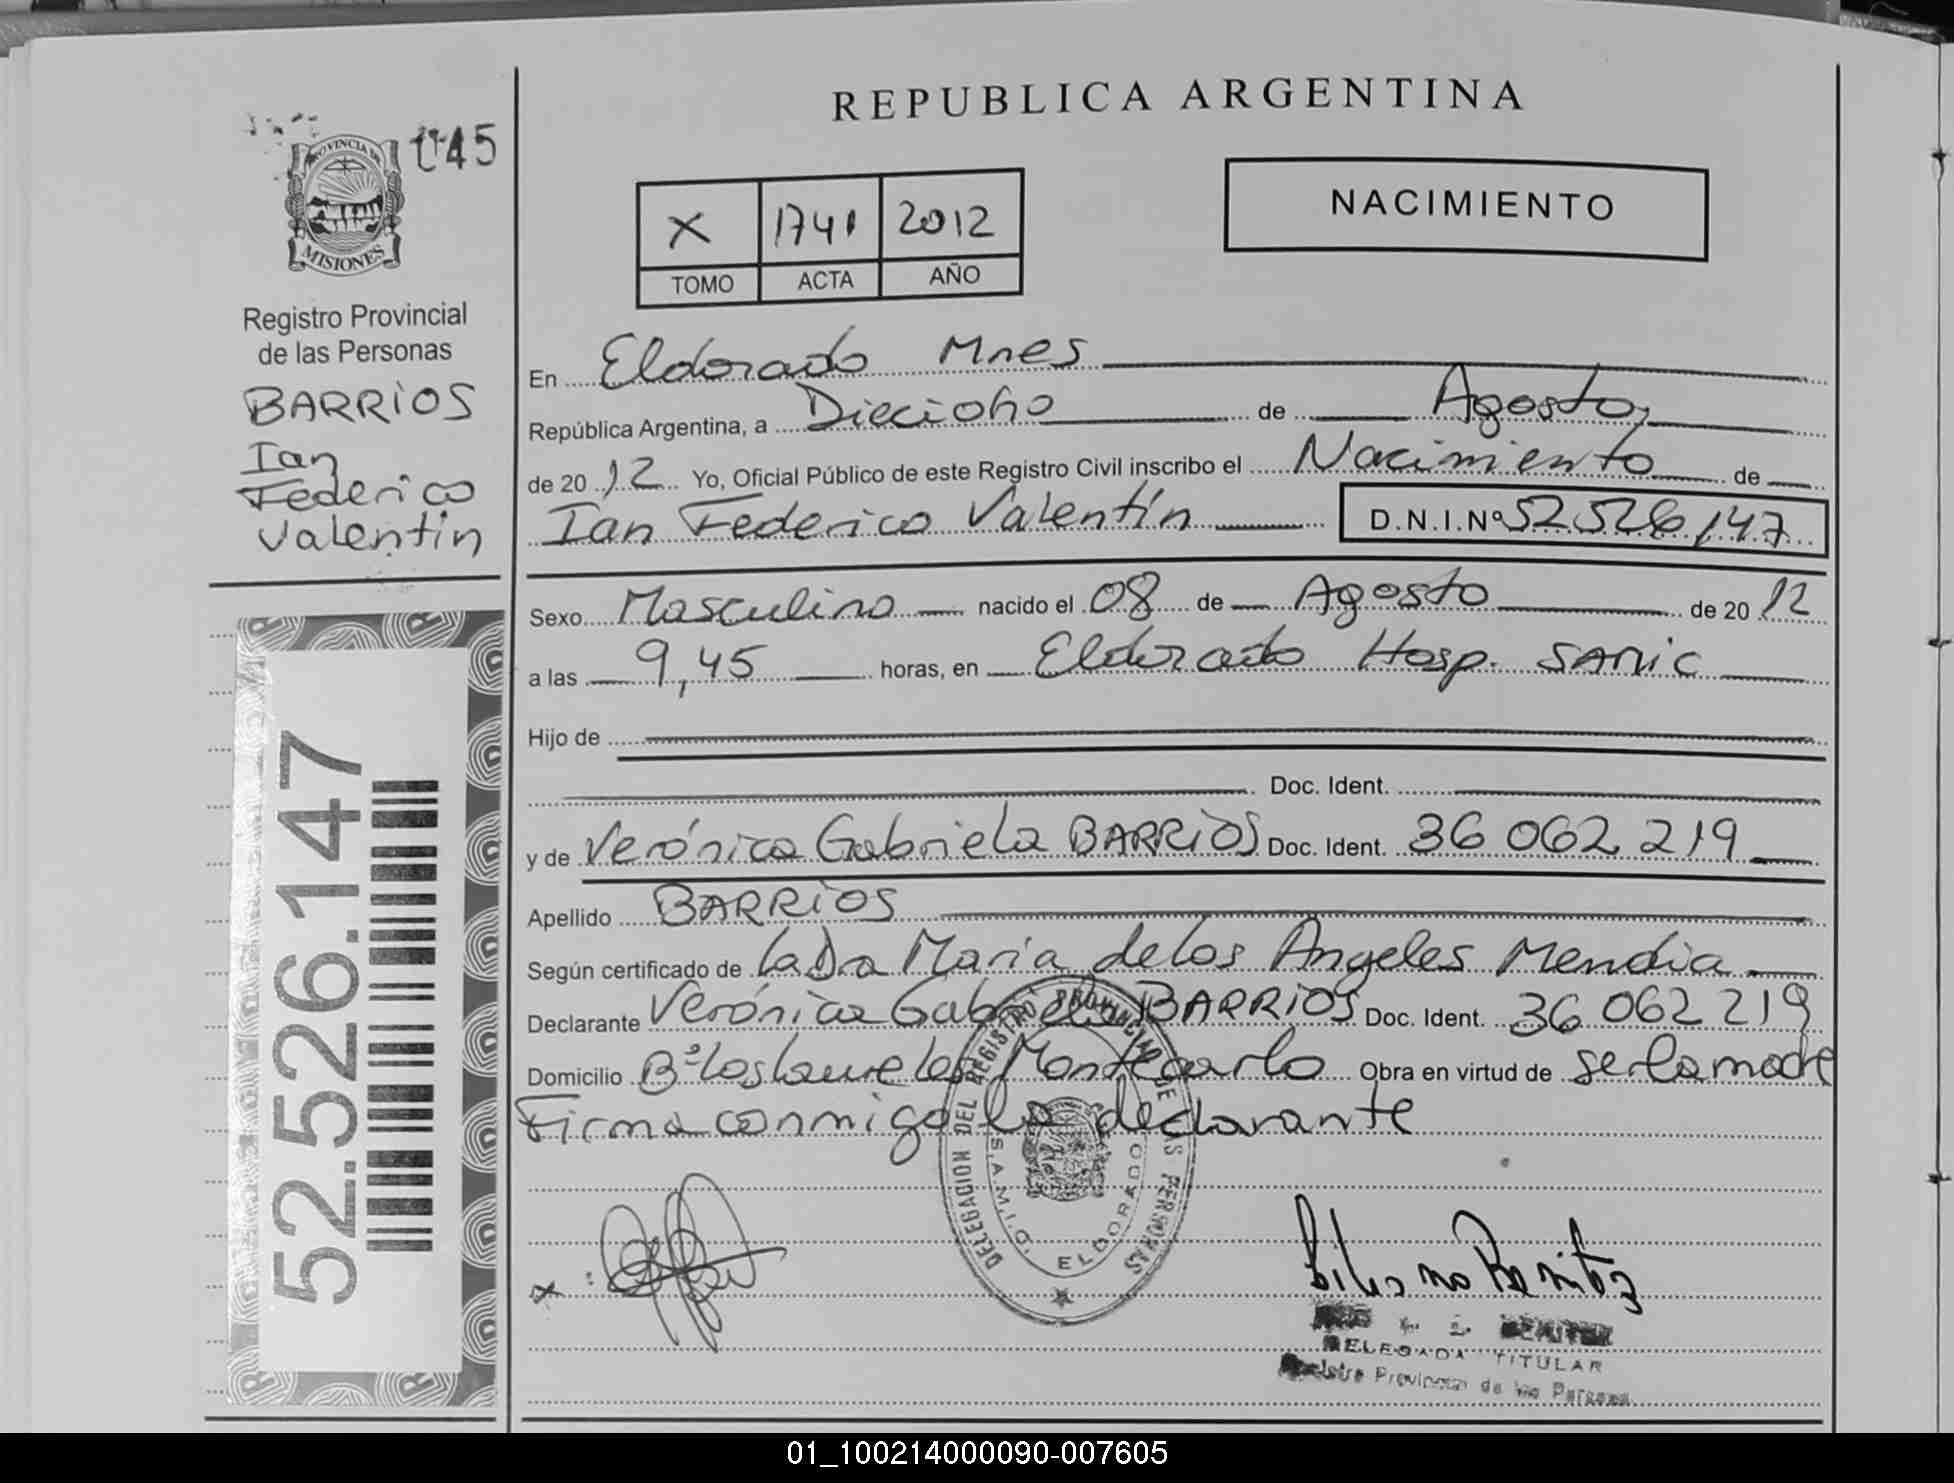 REPUBLICA ARGENTINA
145
PROVINCIA DE
MISIONES
Registro Provincial
de las Personas
BARRIOS
Ian
Federico
Valentín
52.526.147
NACIMIENTO
X 1741 2012
TOMO ACTA AÑO
En Eldorado Mnes
República Argentina, a Diecioho de Agosto,
de 20 12 Yo, Oficial Público de este Registro Civil inscribo el Nacimiento de
Ian Federico Valentín D.N.I.Nº 52.526,147
Sexo Masculino nacido el 08 de Agosto de 20 12
a las 9,45 horas, en Eldorado Hosp. SAMIC
Hijo de
Doc. Ident.
y de Verónica Gabriela BARRIOS Doc. Ident. 36 062 219
Apellido BARRIOS
Según certificado de la Dra María de los Angeles Mendia
Declarante Verónica Gabriela BARRIOS Doc. Ident. 36 062 219
Domicilio Bº los laureles Montecarlo Obra en virtud de ser la madre
Firma conmigo la declarante
DELEGACION DEL REGISTRO PROVINCIAL DE LAS PERSONAS
ELDORADO
x
BENITEZ
DELEGADA TITULAR
Registro Provincial de las Personas
01_100214000090-007605